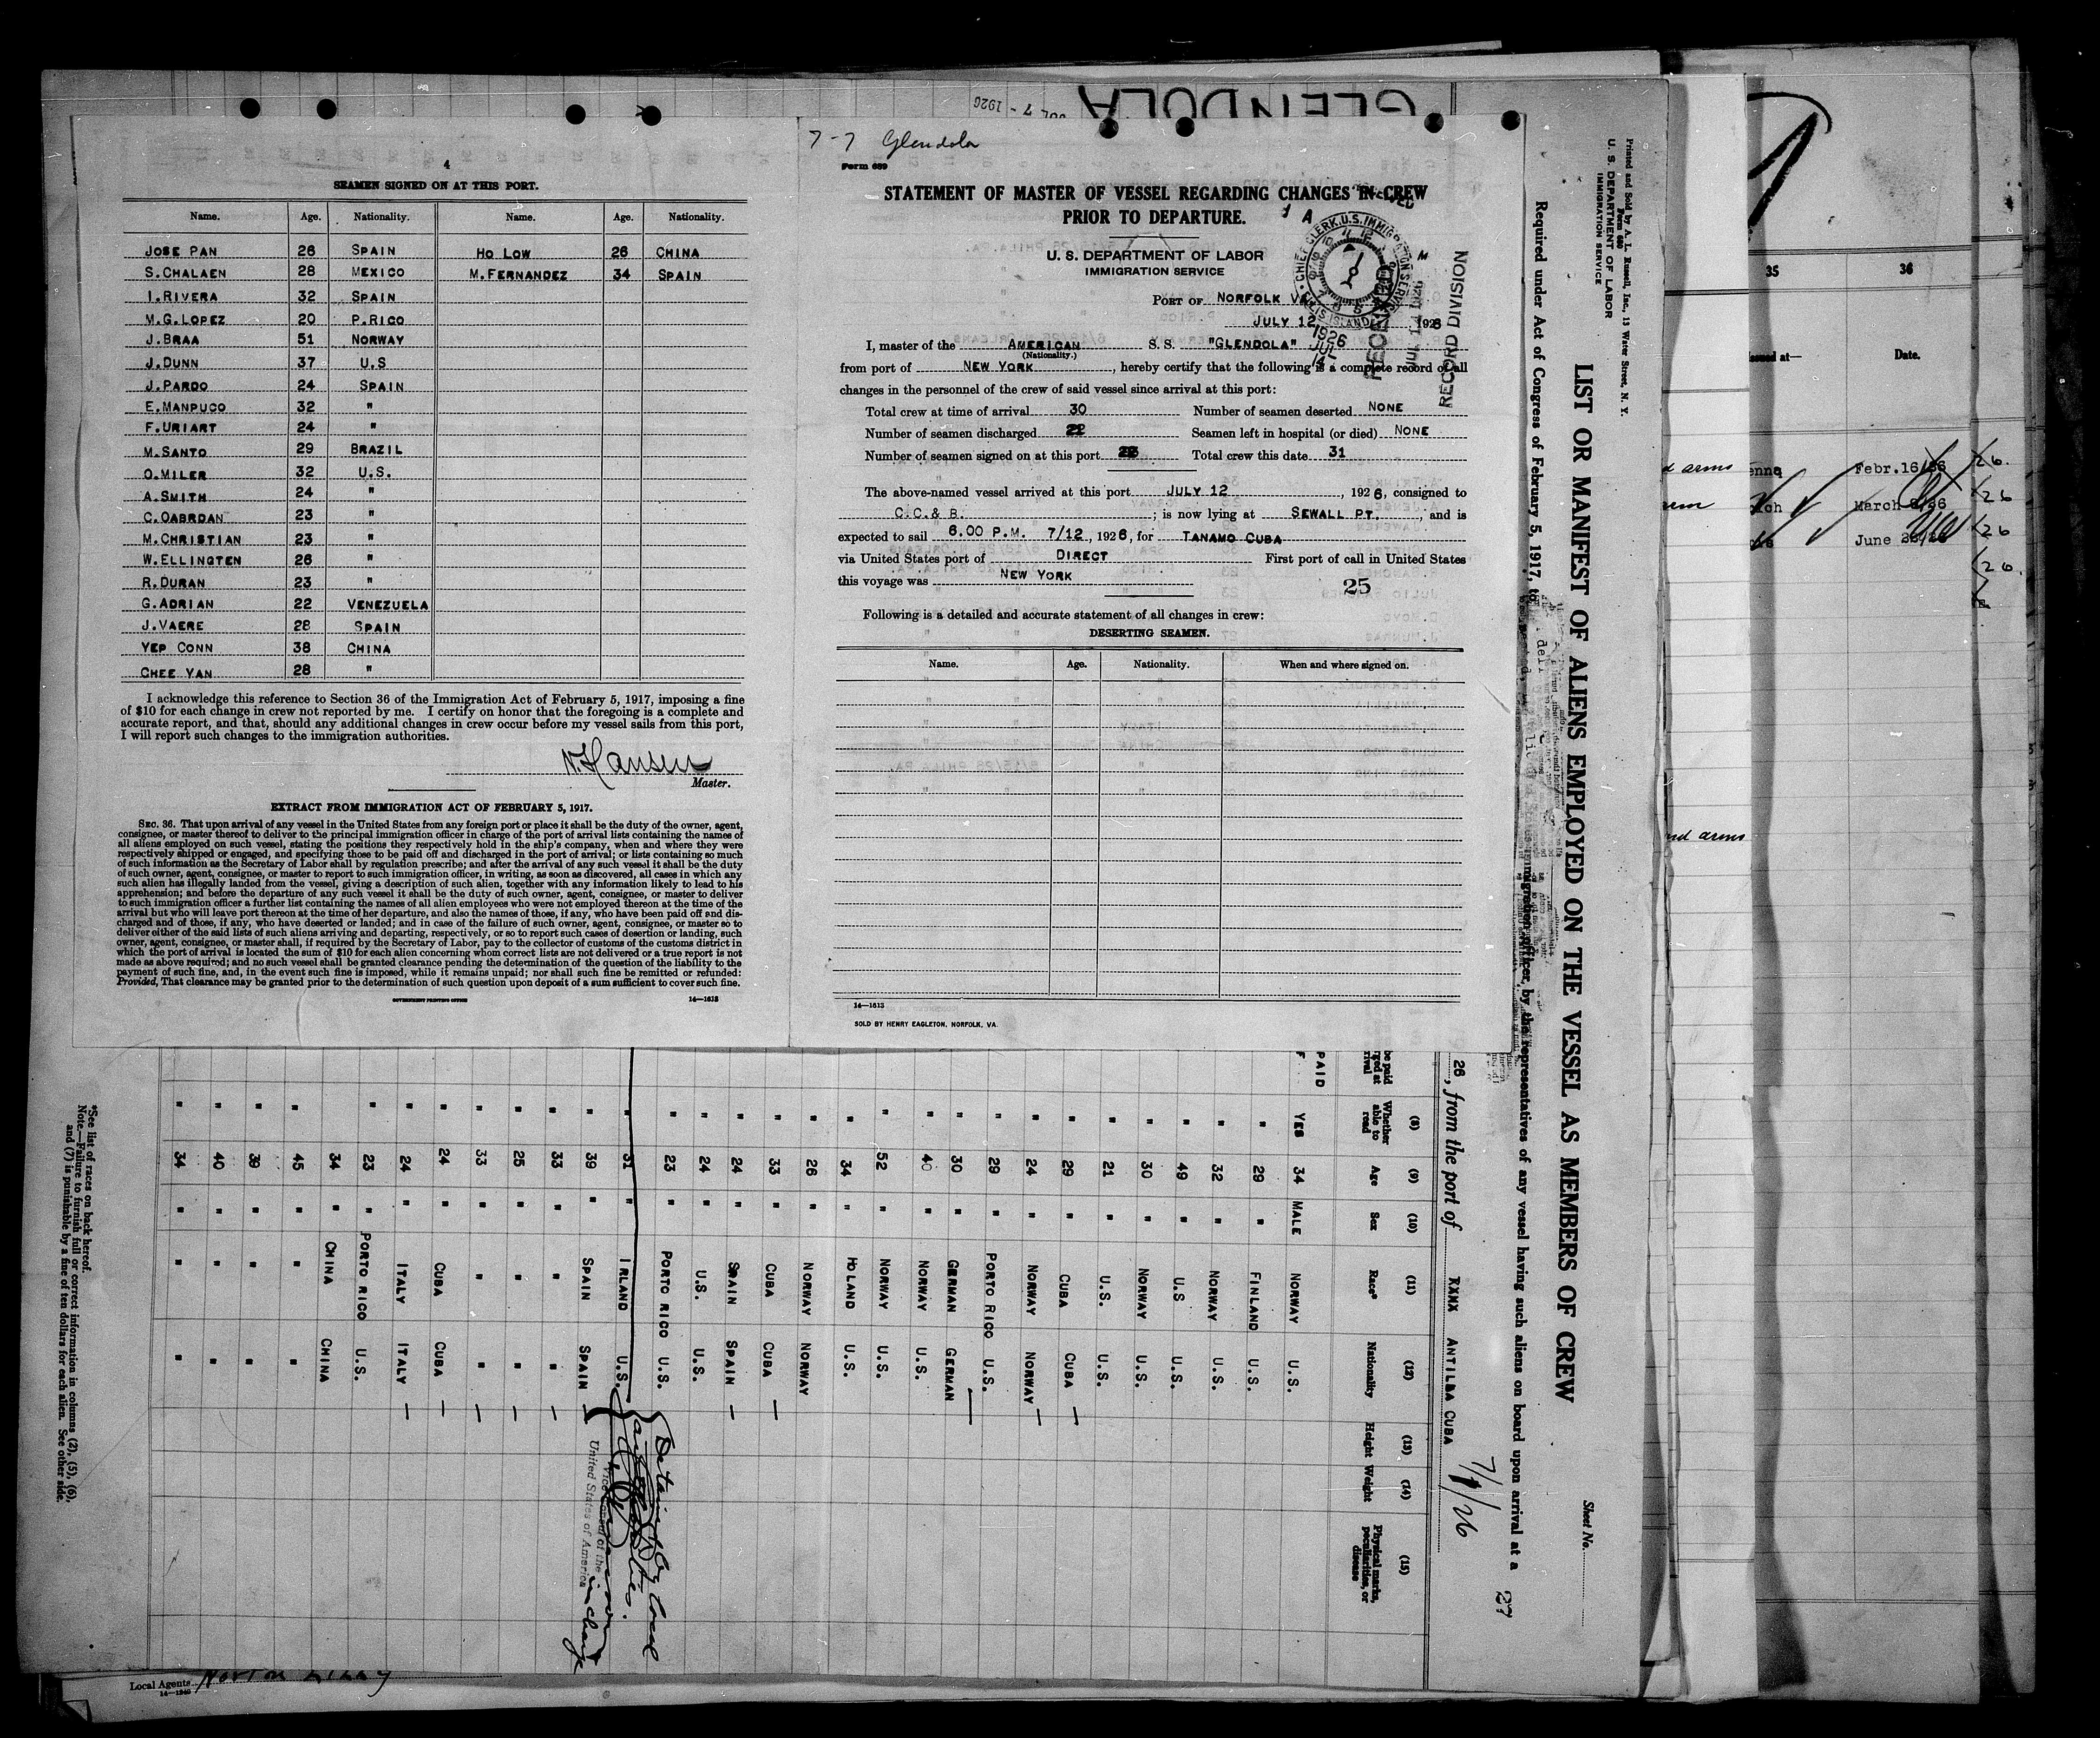 GLENDOLA
JUL 7 - 1926
4
SEAMEN SIGNED ON AT THIS PORT.
Name. Age. Nationality. Name. Age. Nationality.
JOSE PAN 26 SPAIN HO LOW 26 CHINA
S.CHALAEN 28 MEXICO M.FERNANDEZ 34 SPAIN
I.RIVERA 32 SPAIN
M.G.LOPEZ 20 P.RICO
J.BRAA 51 NORWAY
J.DUNN 37 U.S
J.PARDO 24 SPAIN
E.MANPUCO 32 "
F.URIART 24 "
M.SANTO 29 BRAZIL
O.MILER 32 U.S.
A.SMITH 24 "
C.OABRDAN 23 "
M.CHRISTIAN 23 "
W.ELLINGTEN 26 "
R.DURAN 23 "
G.ADRIAN 22 VENEZUELA
J.VAERE 28 SPAIN
YEP CONN 38 CHINA
CHEE YAN 28 "
I acknowledge this reference to Section 36 of the Immigration Act of February 5, 1917, imposing a fine
of $10 for each change in crew not reported by me. I certify on honor that the foregoing is a complete and
accurate report, and that, should any additional changes in crew occur before my vessel sails from this port,
I will report such changes to the immigration authorities.
N.Hansen
Master.
EXTRACT FROM IMMIGRATION ACT OF FEBRUARY 5, 1917.
SEC. 36. That upon arrival of any vessel in the United States from any foreign port or place it shall be the duty of the owner, agent,
consignee, or master thereof to deliver to the principal immigration officer in charge of the port of arrival lists containing the names of
all aliens employed on such vessel, stating the positions they respectively hold in the ship's company, when and where they were
respectively shipped or engaged, and specifying those to be paid off and discharged in the port of arrival; or lists containing so much
of such information as the Secretary of Labor shall by regulation prescribe; and after the arrival of any such vessel it shall be the duty
of such owner, agent, consignee, or master to report to such immigration officer, in writing, as soon as discovered, all cases in which any
such alien has illegally landed from the vessel, giving a description of such alien, together with any information likely to lead to his
apprehension; and before the departure of any such vessel it shall be the duty of such owner, agent, consignee, or master to deliver
to such immigration officer a further list containing the names of all alien employees who were not employed thereon at the time of the
arrival but who will leave port thereon at the time of her departure, and also the names of those, if any, who have been paid off and dis-
charged and of those, if any, who have deserted or landed; and in case of the failure of such owner, agent, consignee, or master so to
deliver either of the said lists of such aliens arriving and departing, respectively, or so to report such cases of desertion or landing, such
owner, agent, consignee, or master shall, if required by the Secretary of Labor, pay to the collector of customs of the customs district in
which the port of arrival is located the sum of $10 for each alien concerning whom correct lists are not delivered or a true report is not
made as above required; and no such vessel shall be granted clearance pending the determination of the question of the liability to the
payment of such fine, and, in the event such fine is imposed, while it remains unpaid; nor shall such fine be remitted or refunded:
Provided, That clearance may be granted prior to the determination of such question upon deposit of a sum sufficient to cover such fine.
GOVERNMENT PRINTING OFFICE 14—1613
7-7 Glendola
Form 689
STATEMENT OF MASTER OF VESSEL REGARDING CHANGES IN CREW
PRIOR TO DEPARTURE.
U. S. DEPARTMENT OF LABOR
IMMIGRATION SERVICE
CHIEF CLERK, U.S. IMMIGRATION SERVICE ELLIS ISLAND
1926
JUL
14
RECEIVED
JUL 14 1926
RECORD DIVISION
PORT OF NORFOLK VA
JULY 12 1926
I, master of the AMERICAN S. S. "GLENDOLA"
(Nationality.)
from port of NEW YORK, hereby certify that the following is a complete record of all
changes in the personnel of the crew of said vessel since arrival at this port:
Total crew at time of arrival 30 Number of seamen deserted NONE
Number of seamen discharged Seamen left in hospital (or died) NONE
Number of seamen signed on at this port Total crew this date 31
The above-named vessel arrived at this port JULY 12, 1926, consigned to
C.C.& B.; is now lying at SEWALL PT., and is
expected to sail 6.00 P.M. 7/12, 1926, for TANAMO CUBA
via United States port of DIRECT First port of call in United States
this voyage was NEW YORK
25
Following is a detailed and accurate statement of all changes in crew:
DESERTING SEAMEN.
Name. Age. Nationality. When and where signed on.
14—1613
SOLD BY HENRY EAGLETON, NORFOLK, VA.
Printed and Sold by A. L. Russell, Inc., 13 Water Street, N. Y.
Form 680
U. S. DEPARTMENT OF LABOR
IMMIGRATION SERVICE
Sheet No.
LIST OR MANIFEST OF ALIENS EMPLOYED ON THE VESSEL AS MEMBERS OF CREW
Required under Act of Congress of February 5, 1917, to be delivered to the United States immigration officer, by the representatives of any vessel having such aliens on board upon arrival at a
27
26, from the port of ANTILBA CUBA 7/7/26
(8) (9) (10) (11) (12) (13) (14) (15)
Whether able to read Age Sex Race* Nationality Height Weight Physical marks, peculiarities, or disease
PAID
YES 34 MALE NORWAY U.S.
" 29 " FINLAND U.S.
" 32 " NORWAY U.S.
" 49 " U.S U.S.
" 30 " NORWAY U.S.
" 21 " U.S. U.S.
" 29 " CUBA CUBA —
" 24 " NORWAY NORWAY —
" 29 " PORTO RICO U.S.
" 30 " GERMAN GERMAN —
" 40 " NORWAY U.S.
" 52 " NORWAY U.S.
" 34 " HOLAND U.S.
" 26 " NORWAY NORWAY
" 33 " CUBA CUBA —
" 24 " SPAIN SPAIN —
" 24 " U.S. U.S.
" 23 " PORTO RICO U.S.
" 31 " IRLAND U.S.
" 39 " SPAIN SPAIN —
" 33 " " " —
" 25 " " " —
" 33 " " " —
" 24 " CUBA CUBA —
" 24 " ITALY ITALY —
" 23 " PORTO RICO U.S.
34 " CHINA CHINA
" 45 " " "
" 39 " " "
" 40 " " "
" 34 " " "
Detained by local
authorities.
Vice Consul of the
United States of America
in charge
*See list of races on back hereof.
Note.—Failure to furnish full or correct information in columns (2), (5), (6),
and (7) is punishable by a fine of ten dollars for each alien. See other side.
Local Agents Norton Lilly
14—1240
35 36
Issued at— Date.
Febr.16/26
March
June
26
26
26
26
and arms